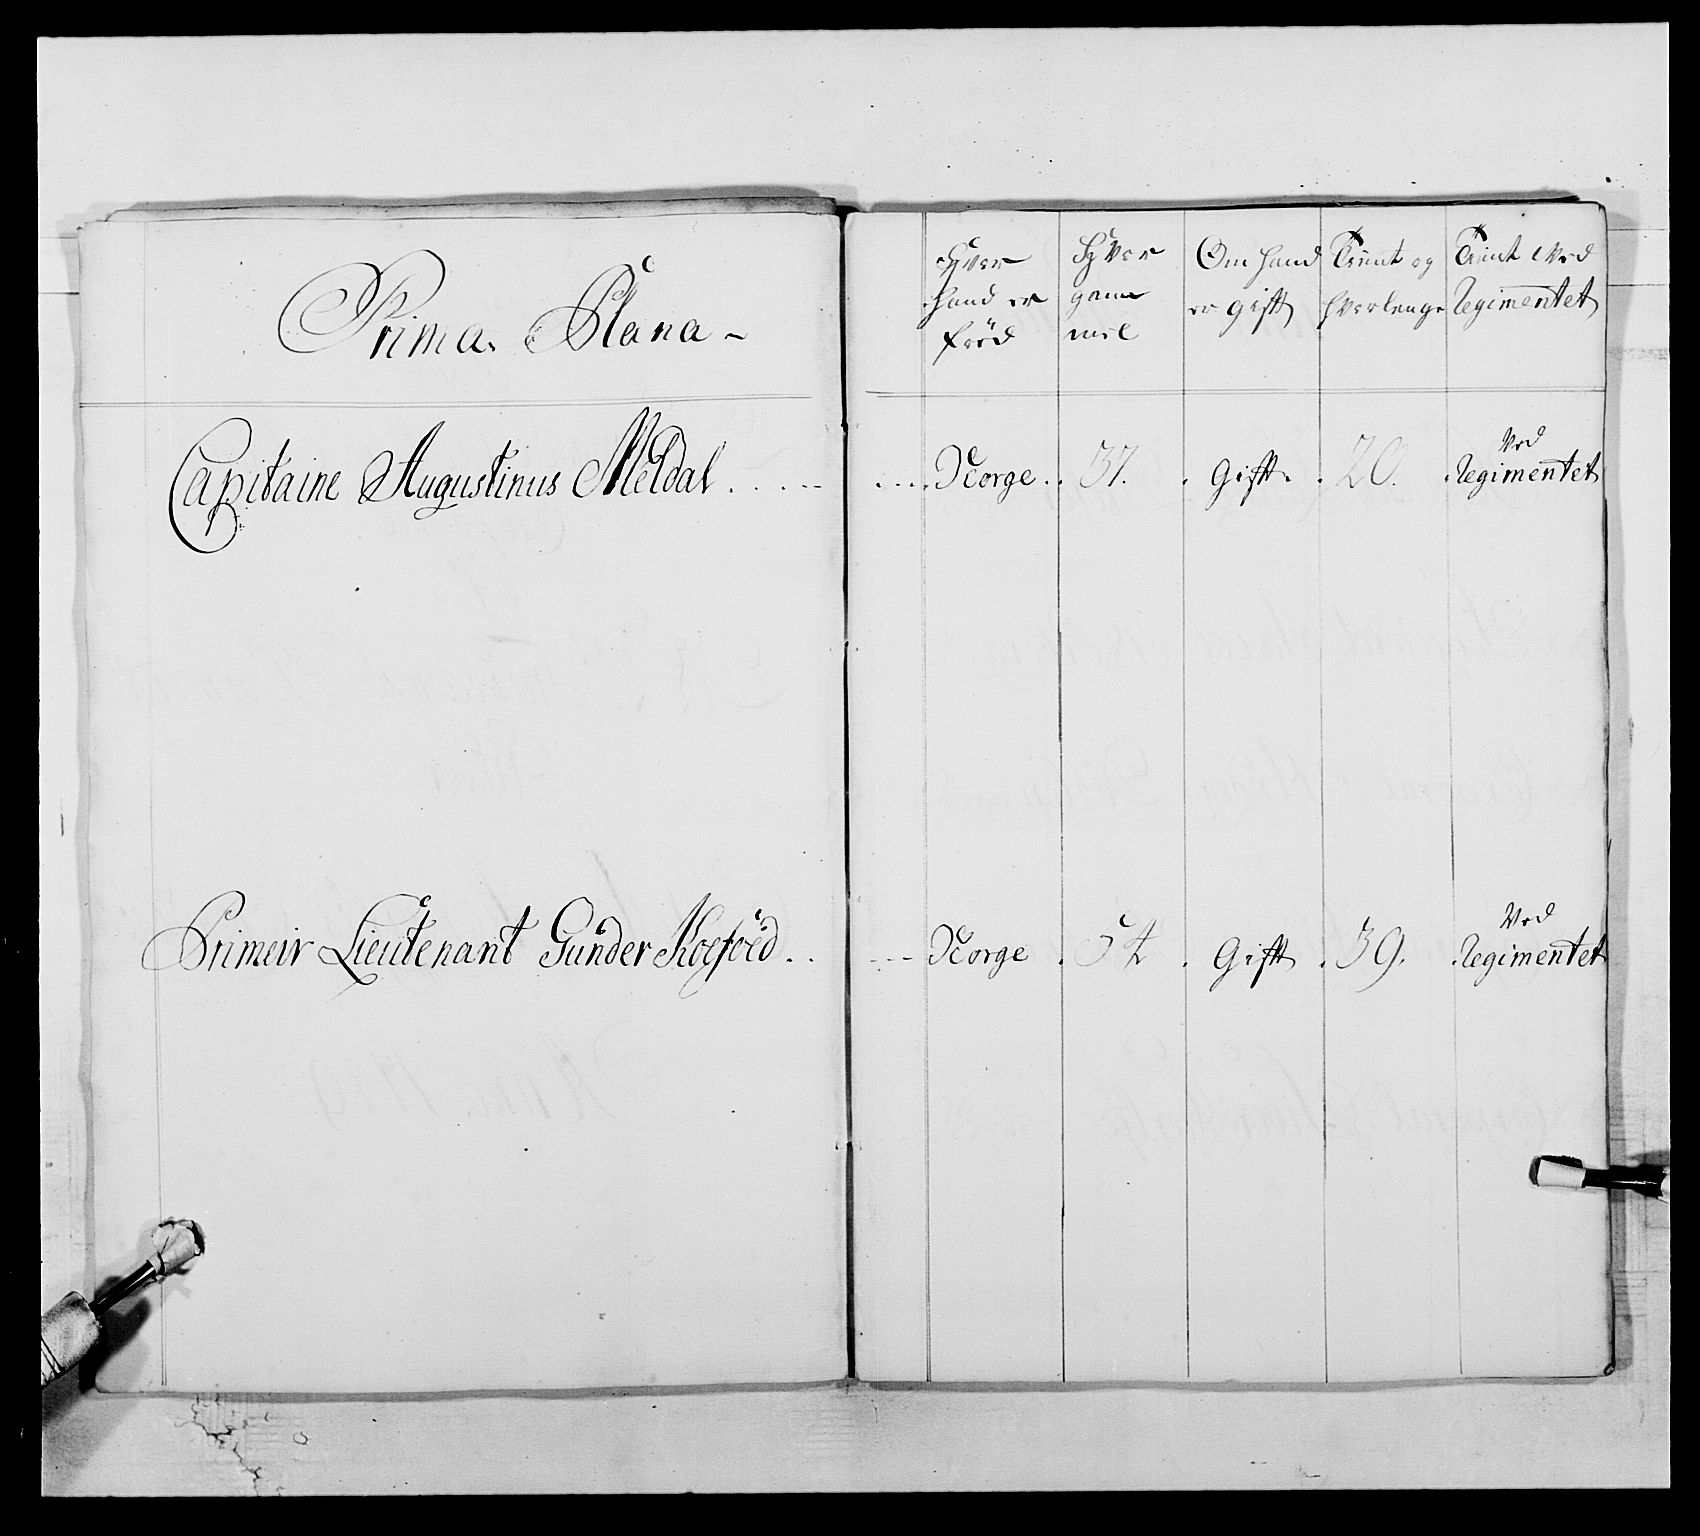 Prima Plana
Hvor hand er fød
Hvor gammel
Om hand er gift
Tient og hvorlenge
Tient Ved Regimentet
Capitaine Augustinus Meldal ..... Norge. 37. Gift. 20. Ved Regimentet
Primeir Lieutenant Gunder Koefoed .. --- Norge . 54 . Gift . 39. Ved Regimentet